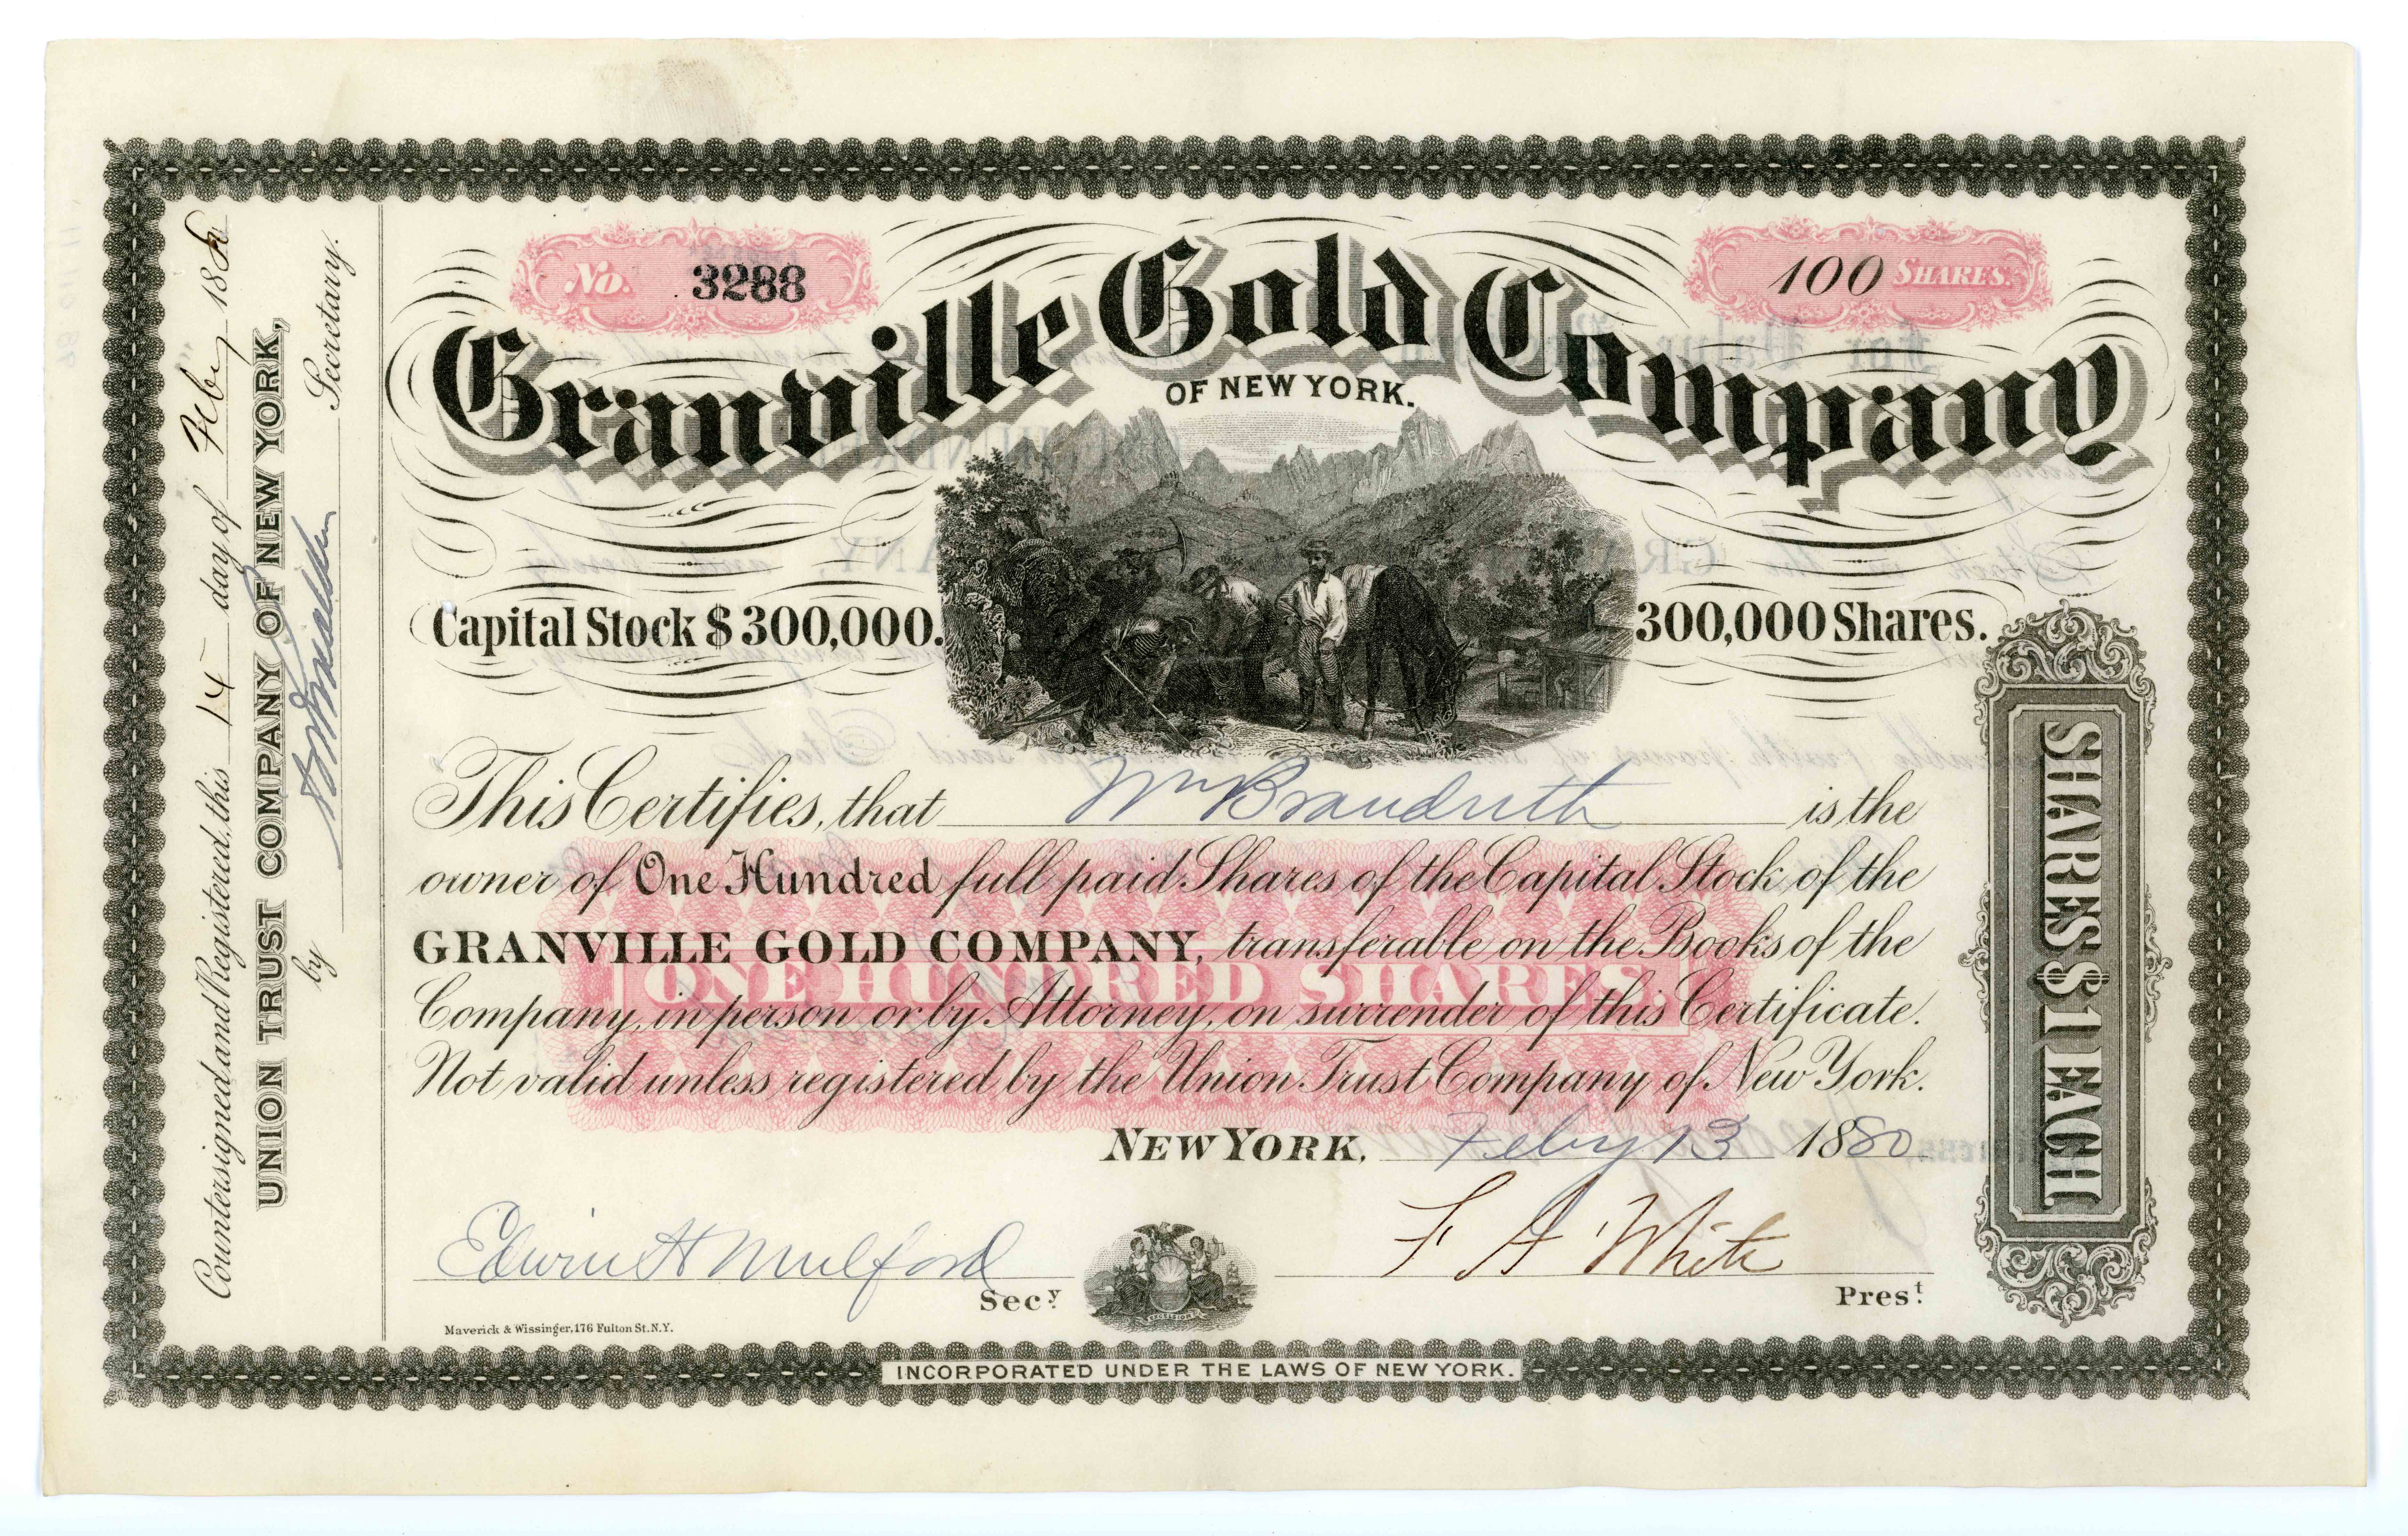 No. 3288
100 SHARES.
Granville Gold Company
OF NEW YORK.
Capital Stock $300,000.
300,000 Shares.
This Certifies, that Wm Brandreth is the
owner of One Hundred full paid Shares of the Capital Stock of the
GRANVILLE GOLD COMPANY, transferable on the Books of the
ONE HUNDRED SHARES.
Company, in person or by Attorney, on surrender of this Certificate.
Not valid unless registered by the Union Trust Company of New York.
NEW YORK, Feby 13 1880
Edwin H Mulford
Secy.
F A White
Prest.
Maverick & Wissinger, 176 Fulton St. N.Y.
EXCELSIOR
INCORPORATED UNDER THE LAWS OF NEW YORK.
SHARES $1 EACH
Countersigned and Registered, this 14 day of Feby 1880
UNION TRUST COMPANY OF NEW YORK,
by Secretary.